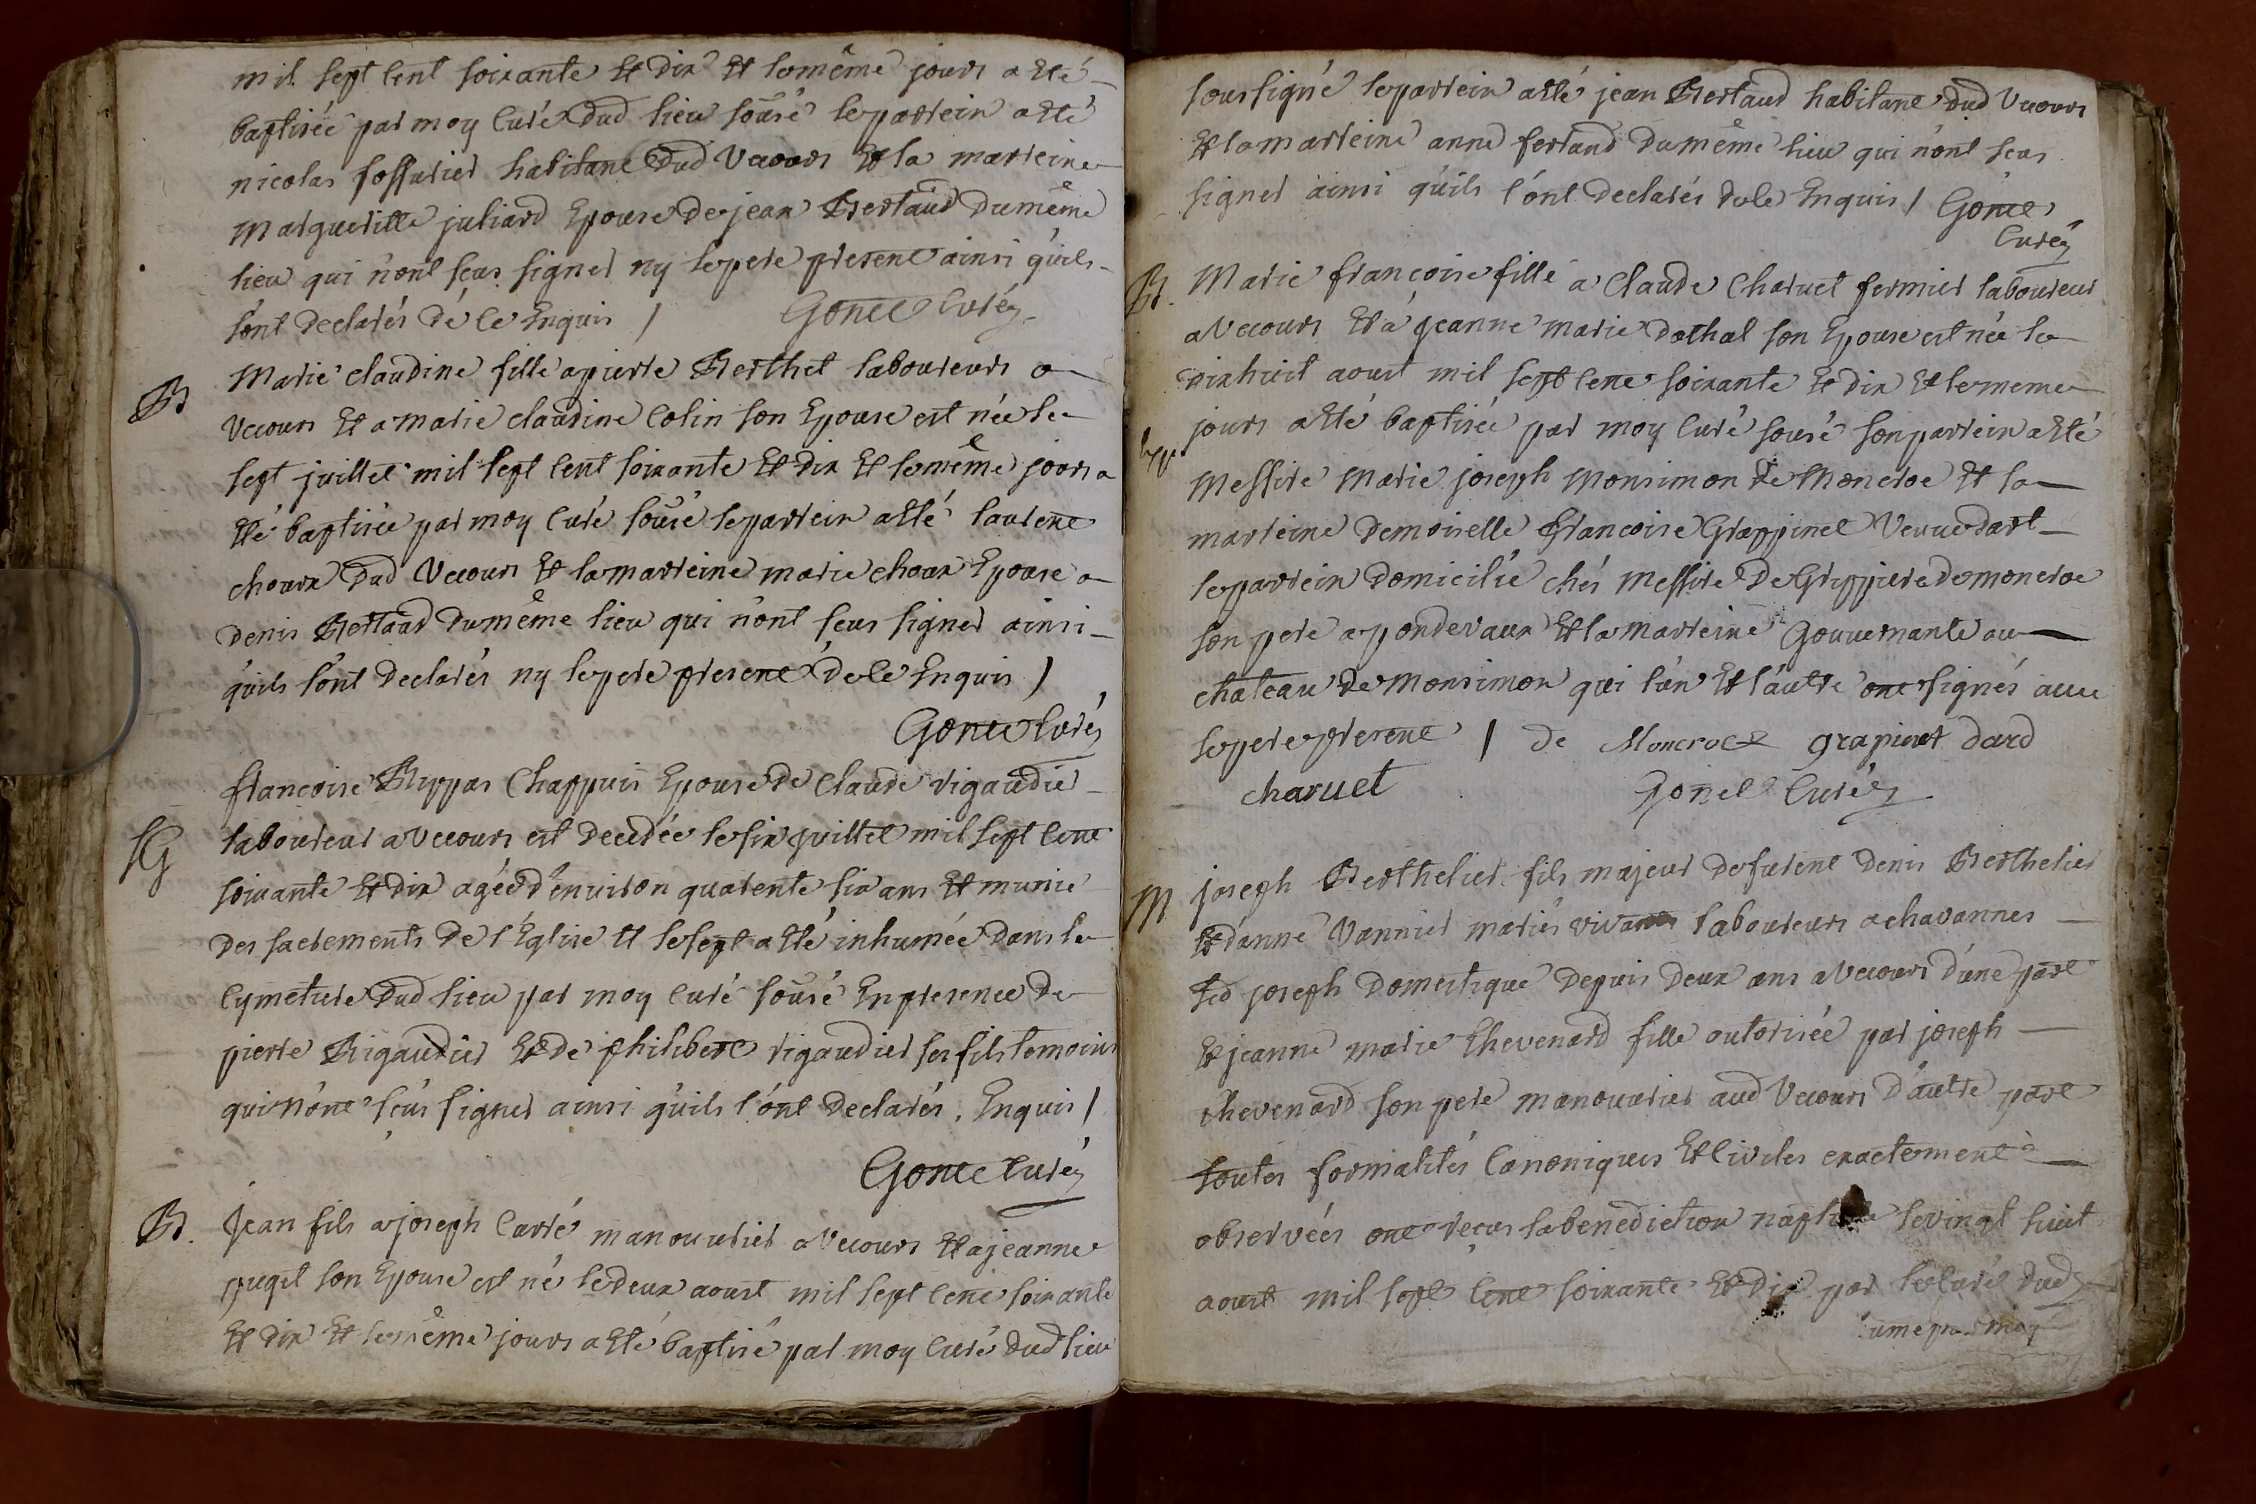 mil sept cent soixante Et dix Et le même jours a Eté
baptisée par moy Curé dud lieu sousé le parrein a Eté
nicolas fossurier habitant dud Vecours Et la marreine
margueritte juliard Epouse de jean Bertaud du même
lieu qui n'ont scus signer ny le pere present ainsi qu'ils
l'ont declarés dé ce Enquis / Gonet Curé
B Marie claudine fille a pierre Berthet laboureurs a
Vecours Et a marie claudine Colin son Epouse est née le
sept juillet mil sept cent soixante Et dix Et le même jours a
Eté baptisée par moy Curé sousé le parrein a Eté laurent
choux dud Vecours Et la marreine marie choux Epouse a
denis Bertaud du même lieu qui n'ont scus signer ainsi
qu'ils l'ont declarés ny le pere present de ce Enquis /
Gonet Curé
francoise Buppas Chappuis Epouse de Claude rigaudié
SG laboureur a Vecours est decedée le six juillet mil sept cent
soixante Et dix agée d'environ quarente six ans Et munie
des sacrements de l'Eglise Et le sept a Eté inhumée dans le
Cymetiere dud lieu par moy curé sousé En presence de
pierre Rigaudier Et de philibert rigaudier ses fils temoins
qui n'ont scus signer ainsi qu'ils l'ont declarés, Enquis /
Gonet Curé
B. Jean fils a joseph Carré manouvrier a Vecours Et a jeanne
puget son Epouse est né le deux aoust mil sept cent soixante
Et dix Et le même jours a Eté baptisé par moy Curé dud lieu
soussigné le parrein a Eté jean Bertaud habitant dud Vecours
Et la marreine anne fertand du même lieu qui n'ont scus
signer ainsi qu'ils l'ont declarés de ce Enquis / Gonet
Curé
B. Marie francoise fille a Claude Charuet fermier laboureur
a Vecours Et a jeanne marie dathal son Epouse est née le
dixhuit aoust mil sept cent soixante Et dix Et le meme
jours a Eté baptisée par moy Curé sousé son parrein a Eté
Messire Marie joseph Monsimon de Moncroc Et la
marreine demoiselle francoise Grappinet Veuve dart
le parrein domicilié chés Messire de Gruppiere de moncroc
son pere a pondevaux Et la marreine Gouvernante au
chateau de Monsimon qui l'un Et l'autre ont signés avec
le pere present / de Moncrocx grapinet dard
charuet Gonet Curé
M joseph Berthelier fils majeur de furent denis Berthelier
Et d'anne Vannier mariés vivants laboureurs a chavannes
led joseph domestique depuis deux ans a Vecours d'une part
Et jeanne marie Chevenard fille autorisée par joseph
chevenard son pere manouvrier aud Vecours d'autre part
toutes formalités Canoniques Et Civiles exactement
observées ont reçus la benediction nuptiale le vingt huit
aoust mil sept cent soixante Et dix par le Curé dud